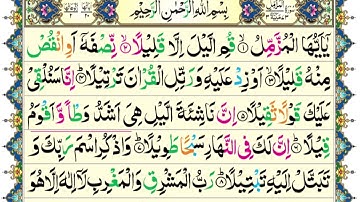 بِسْمِ اللهِ الرَّحْمٰنِ الرَّحِيْمِ
يٰٓاَيُّهَا الْمُزَّمِّلُ ۙ﴿۱﴾ قُمِ الَّيْلَ اِلَّا قَلِيْلًا ۙ﴿۲﴾ نِّصْفَهٗٓ اَوِ انْقُصْ
مِنْهُ قَلِيْلًا ۙ﴿۳﴾ اَوْ زِدْ عَلَيْهِ وَرَتِّلِ الْقُرْاٰنَ تَرْتِيْلًا ؕ﴿۴﴾ اِنَّا سَنُلْقِيْ
عَلَيْكَ قَوْلًا ثَقِيْلًا ﴿۵﴾ اِنَّ نَاشِئَةَ الَّيْلِ هِيَ اَشَدُّ وَطْاً وَّاَقْوَمُ
قِيْلًا ؕ﴿۶﴾ اِنَّ لَكَ فِي النَّهَارِ سَبْحًا طَوِيْلًا ؕ﴿۷﴾ وَاذْكُرِ اسْمَ رَبِّكَ وَ
تَبَتَّلْ اِلَيْهِ تَبْتِيْلًا ؕ﴿۸﴾ رَبُّ الْمَشْرِقِ وَالْمَغْرِبِ لَآ اِلٰهَ اِلَّا هُوَ